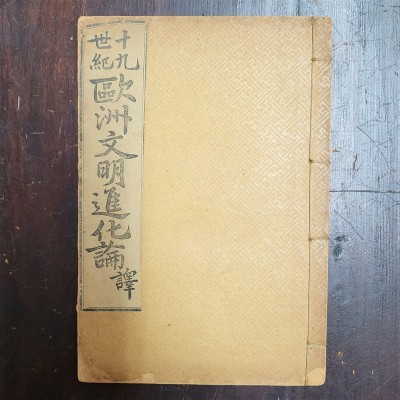 十九世紀
歐洲文明進化論譯